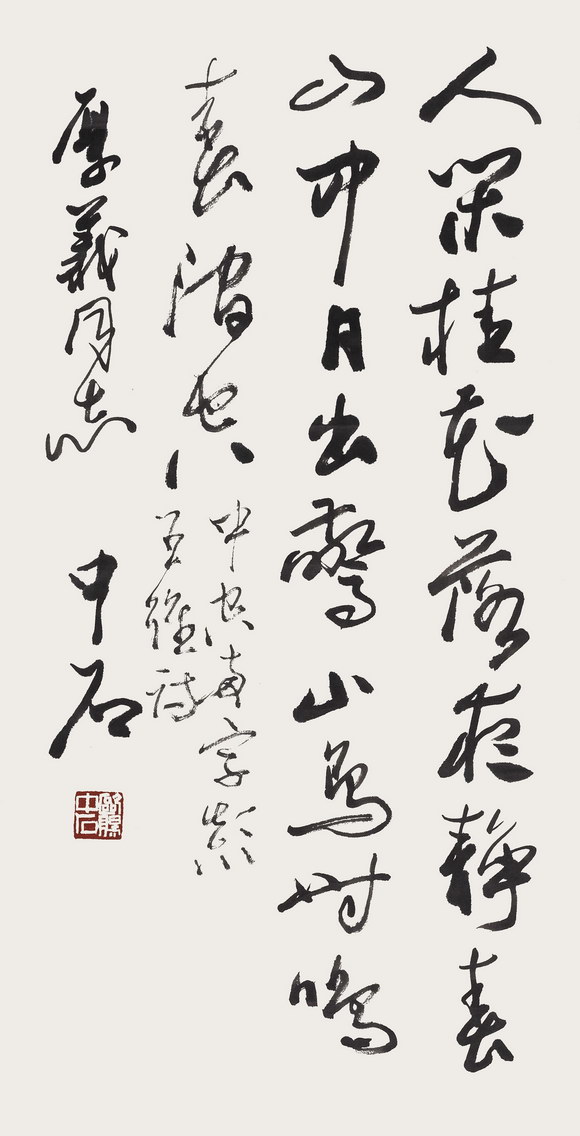 人閑桂花落夜靜春
山中月出驚山鳥時鳴
春澗空
中空兩字顛
王維詩
厚義同志
中石
歐陽中石